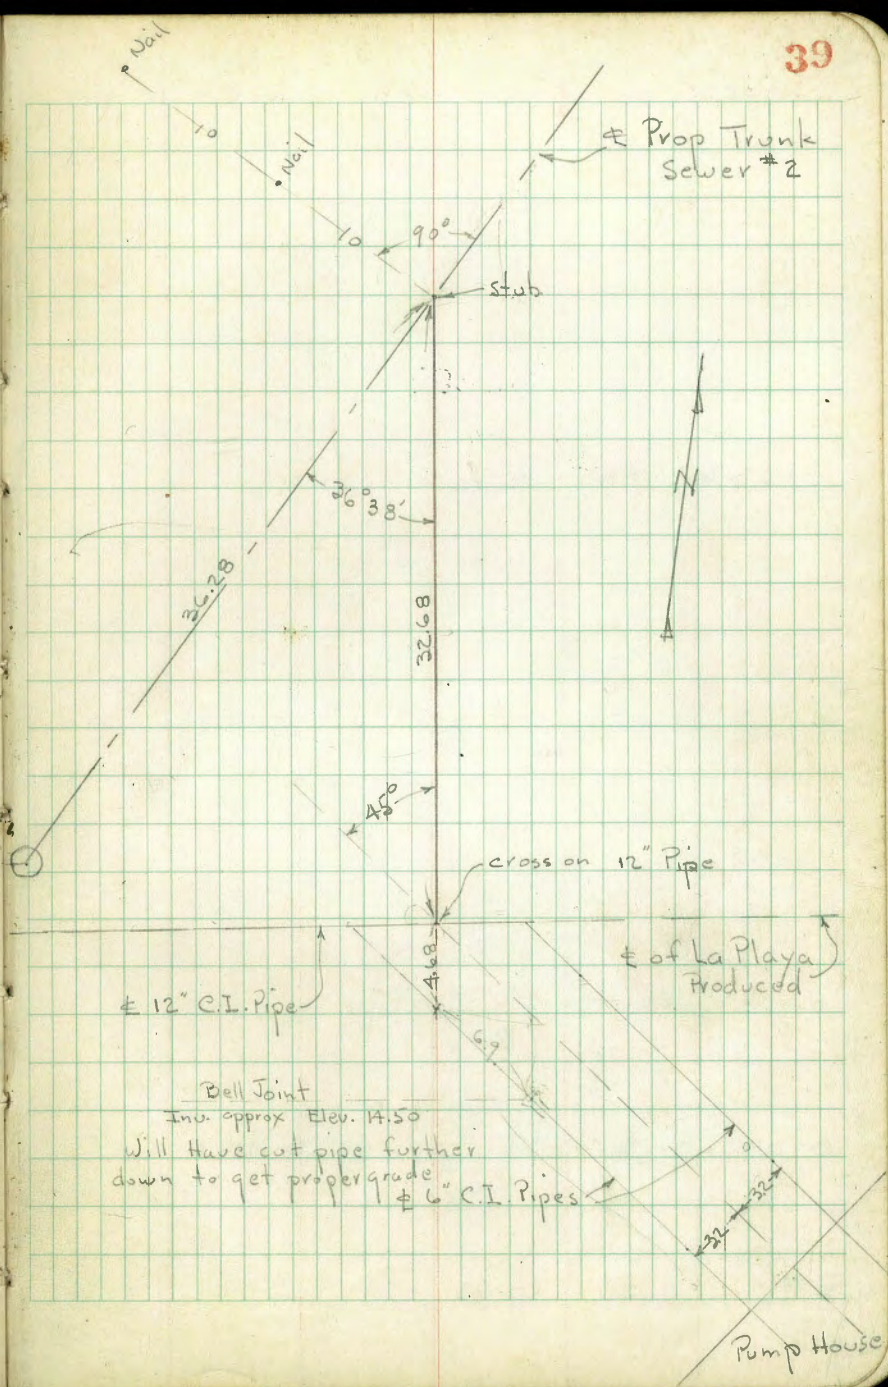 39
Nail
10
Nail
10
90°
℄ Prop Trunk
Sewer #2
stub
36°38'
36.28
32.68
N
45°
cross on 12" Pipe
4.68
℄ of La Playa
Produced
℄ 12" C.I. Pipe
6.9
Bell Joint
Inv. approx Elev. 14.50
Will Have cut pipe further
down to get proper grade
℄ 6" C.I. Pipes
32
32
Pump House